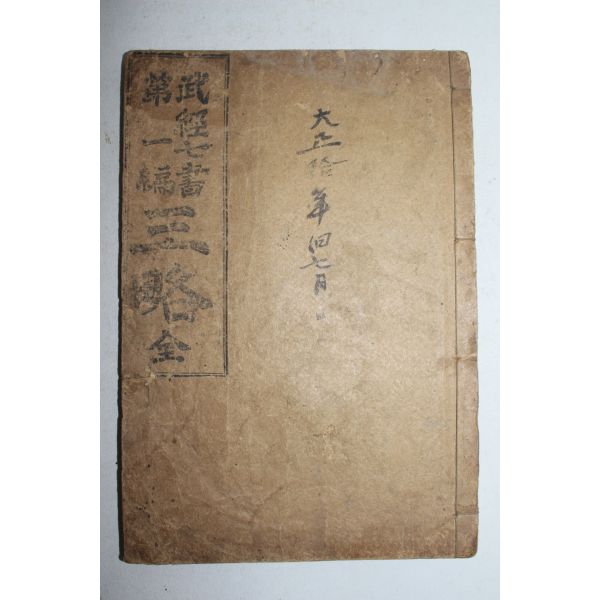 武經七書
第一編
三略全
大正拾年旧七月